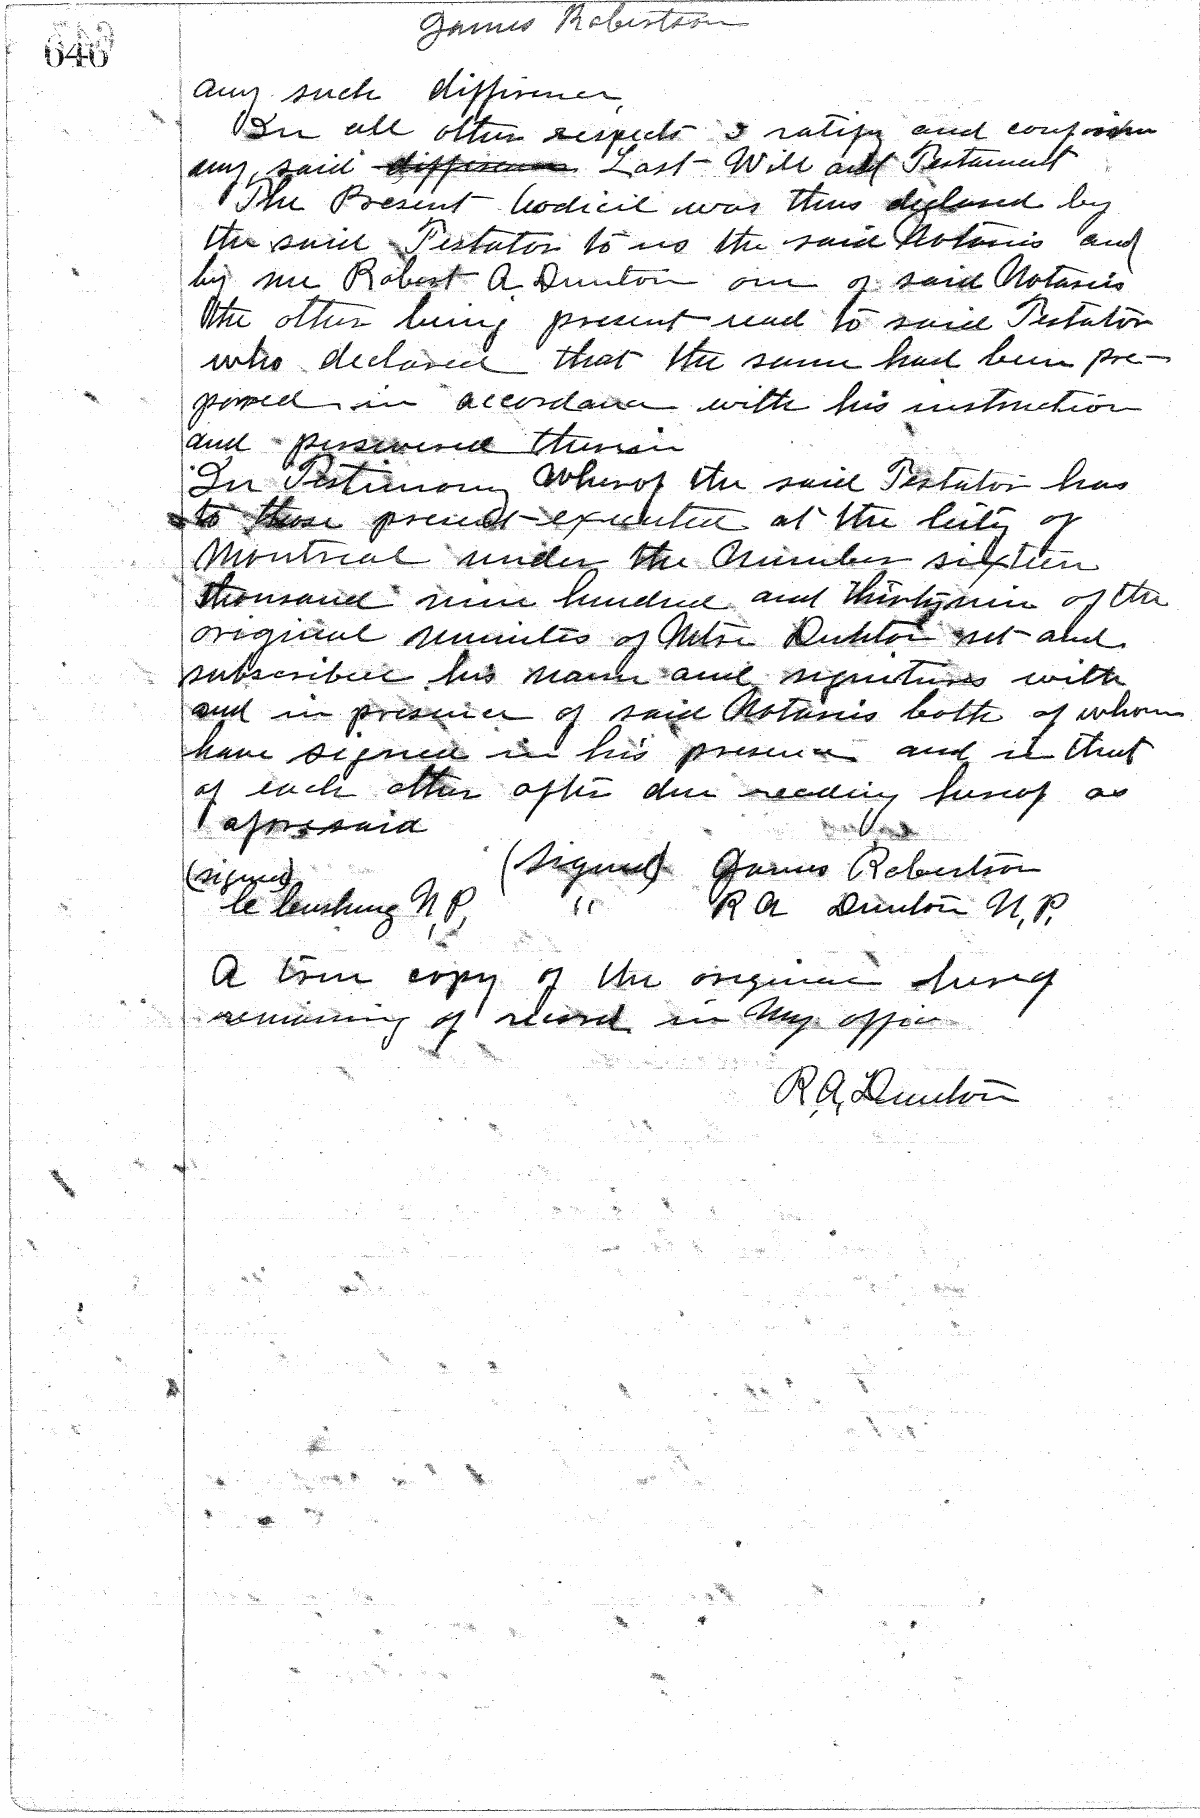 James Robertson
646
any such difference,
In all other respects I ratify and confirm
my said difference Last Will and Testament
The Present Codicil was thus declared by
the said Testator to us the said Notaries and
by me Robert A. Dunton one of said Notaries
the other being present read to said Testator
who declared that the same had been pre-
pared in accordance with his instruction
and persevered therein
In Testimony Whereof the said Testator has
to these present executed at the City of
Montreal under the Number sixteen
thousand nine hundred and thirty nine of the
original minutes of Mtre Dunton set and
subscribed his name and signatures with
and in presence of said Notaries both of whom
have signed in his presence and in that
of each other after due reading hereof as
aforesaid
(signed) James Robertson
(signed)
C Cushing N.P. " R A Dunton N.P.
A true copy of the original hereof
remaining of record in my office
R. A. Dunton